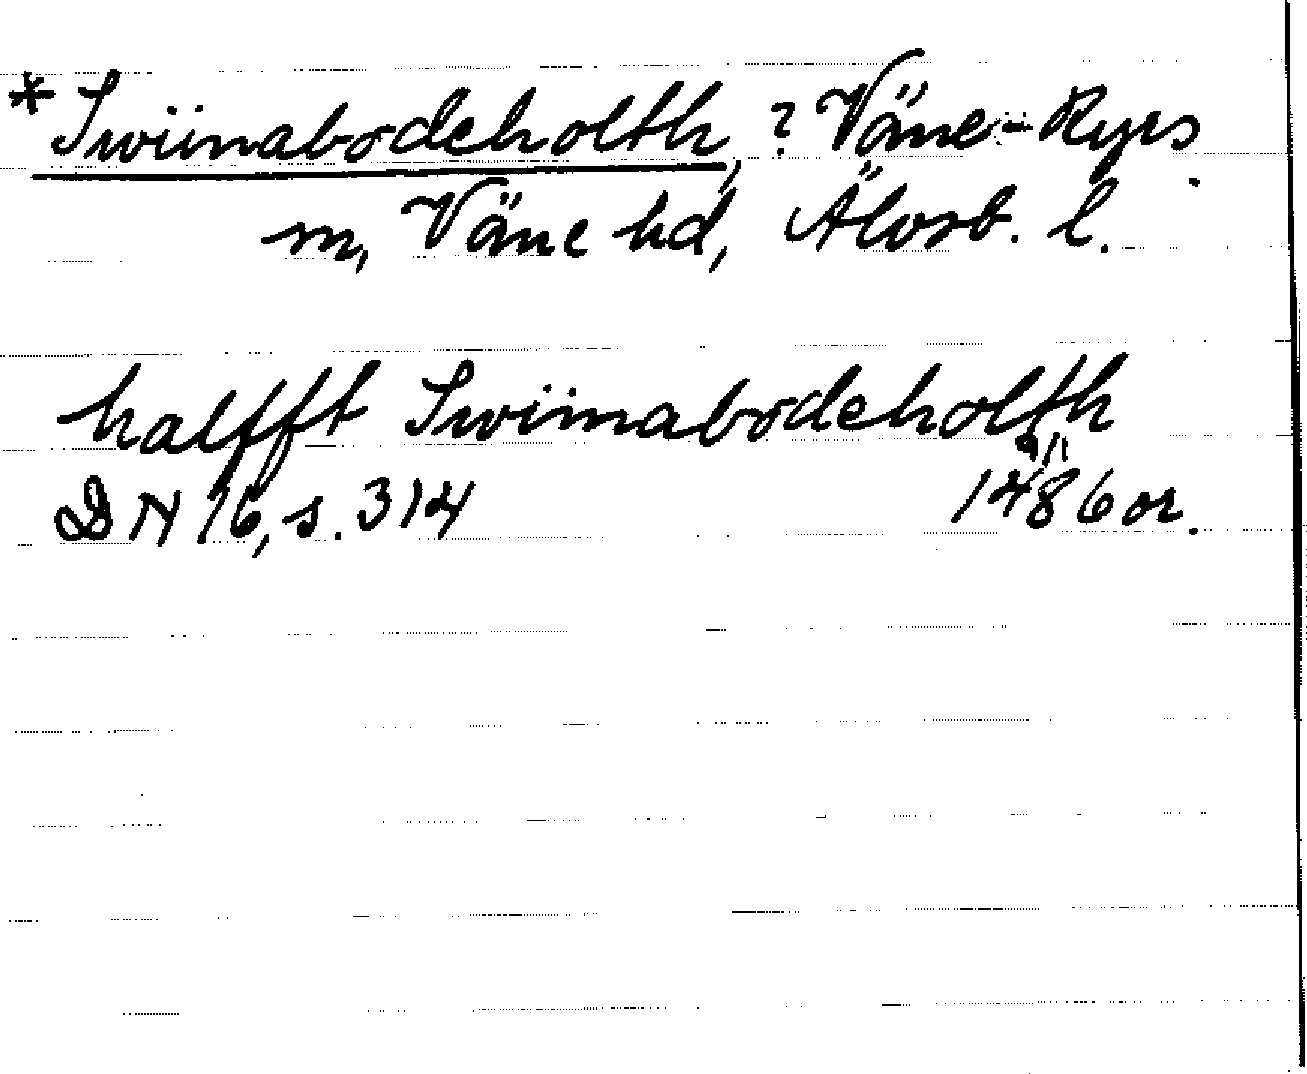 *Swiinabodeholth, ? Väne-Ryrs
m, Väne hd, Älvsb. l.
halfft Swiinabodeholth
DN 16, s. 314 9/11 1486 or.